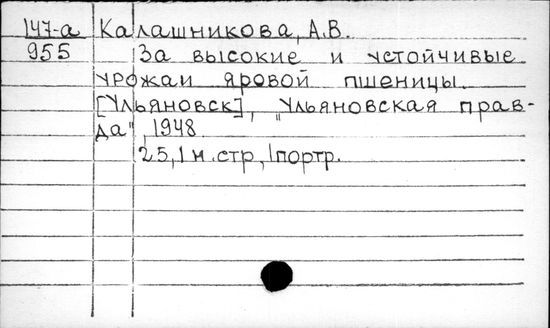 147-а Калашникова, А.В.
955 За высокие и устойчивые
урожаи яровой пшеницы.
[Ульяновск], "Ульяновская прав-
да", 1948.
25,1 н. стр., 1 портр.